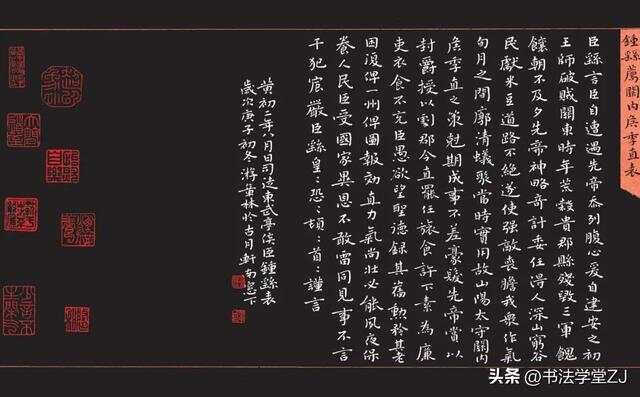 鍾繇薦關內侯季直表
臣繇言臣自遭遇先帝忝列腹心爰自建安之初
王師破賊關東時年荒穀貴郡縣殘毀三軍餽
饟朝不及夕先帝神略奇計委任得人深山窮谷
民獻米豆道路不絕遂使强敵喪膽我衆作氣
旬月之間廓清蟻聚當時實用故山陽太守關內
侯季直之策尅期成事不差豪髮先帝賞以
封爵授以劇郡今直罷任旅食許下素為廉
吏衣食不充臣愚欲望聖德錄其舊勳矜其老
困復俾一州俾圖報効直力氣尚壯必能夙夜保
養人民臣受國家異恩不敢雷同見事不言
干犯宸嚴臣繇皇:恐:頓:首:謹言
黃初二年八月日司徒東武亭侯臣鍾繇表
歲次庚子初冬游黃林於古月軒南窗下
头条 @书法学堂ZJ